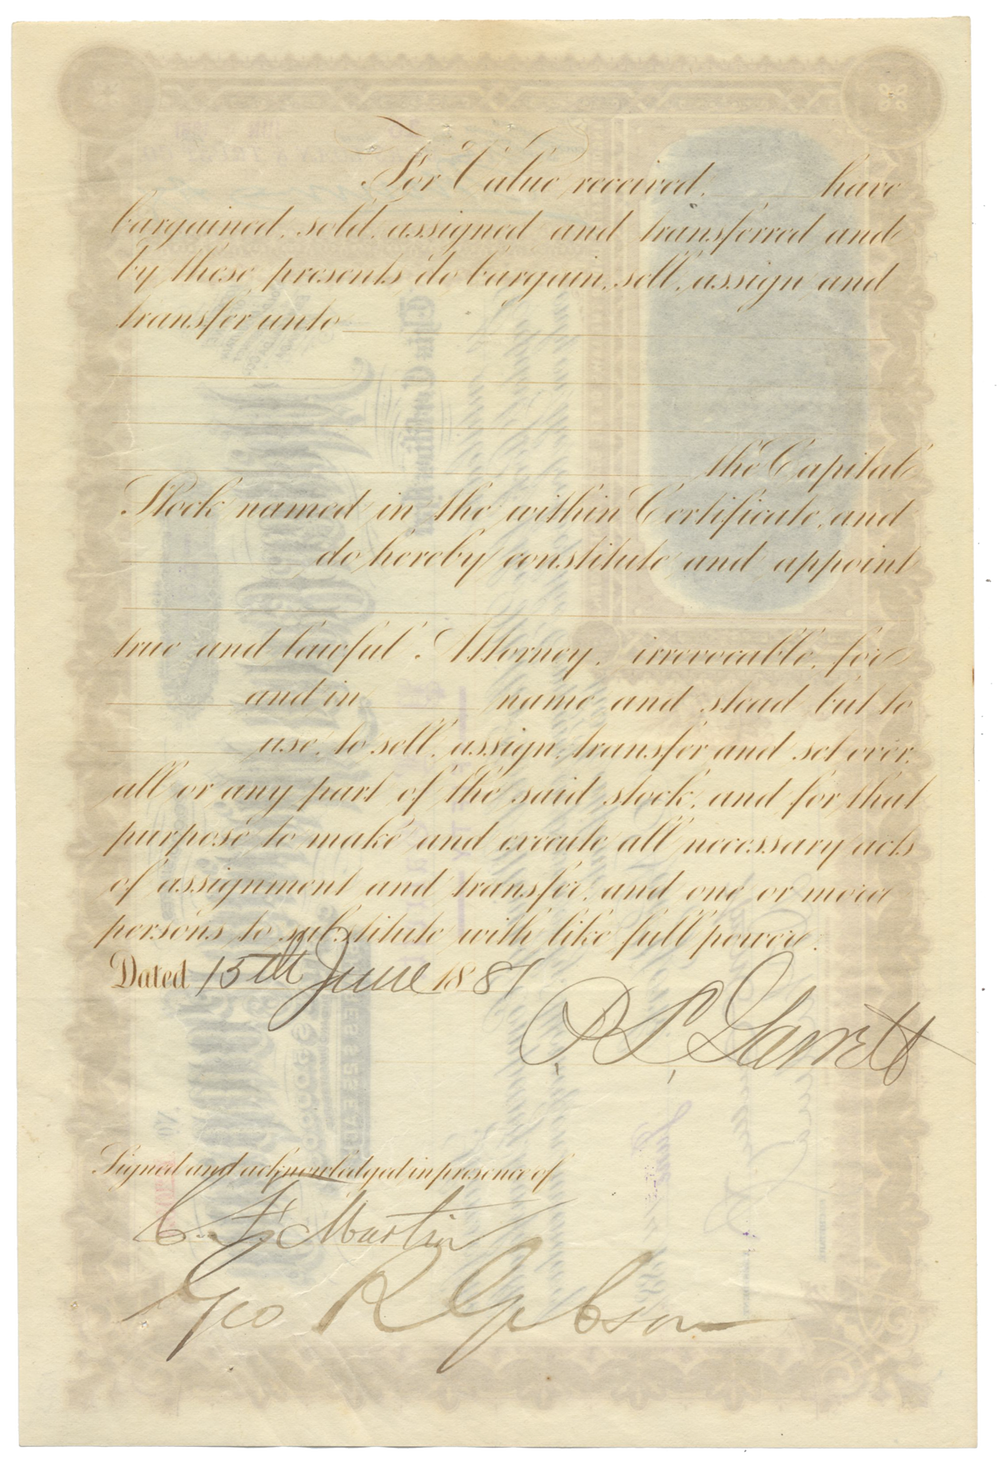 For Value received, have
bargained, sold, assigned and transferred and
by these presents do bargain, sell, assign and
transfer unto
the Capital
Stock named in the within Certificate, and
do hereby constitute and appoint
true and lawful Attorney, irrevocable, for
and in name and stead but to
use, to sell, assign, transfer and set over,
all or any part of the said stock, and for that
purpose to make and execute all necessary acts
of assignment and transfer, and one or more
persons to substitute with like full power.
Dated 15th June 1881
P. S. Garrett
Signed and acknowledged in presence of
C. F. Martin
Geo R Gibson